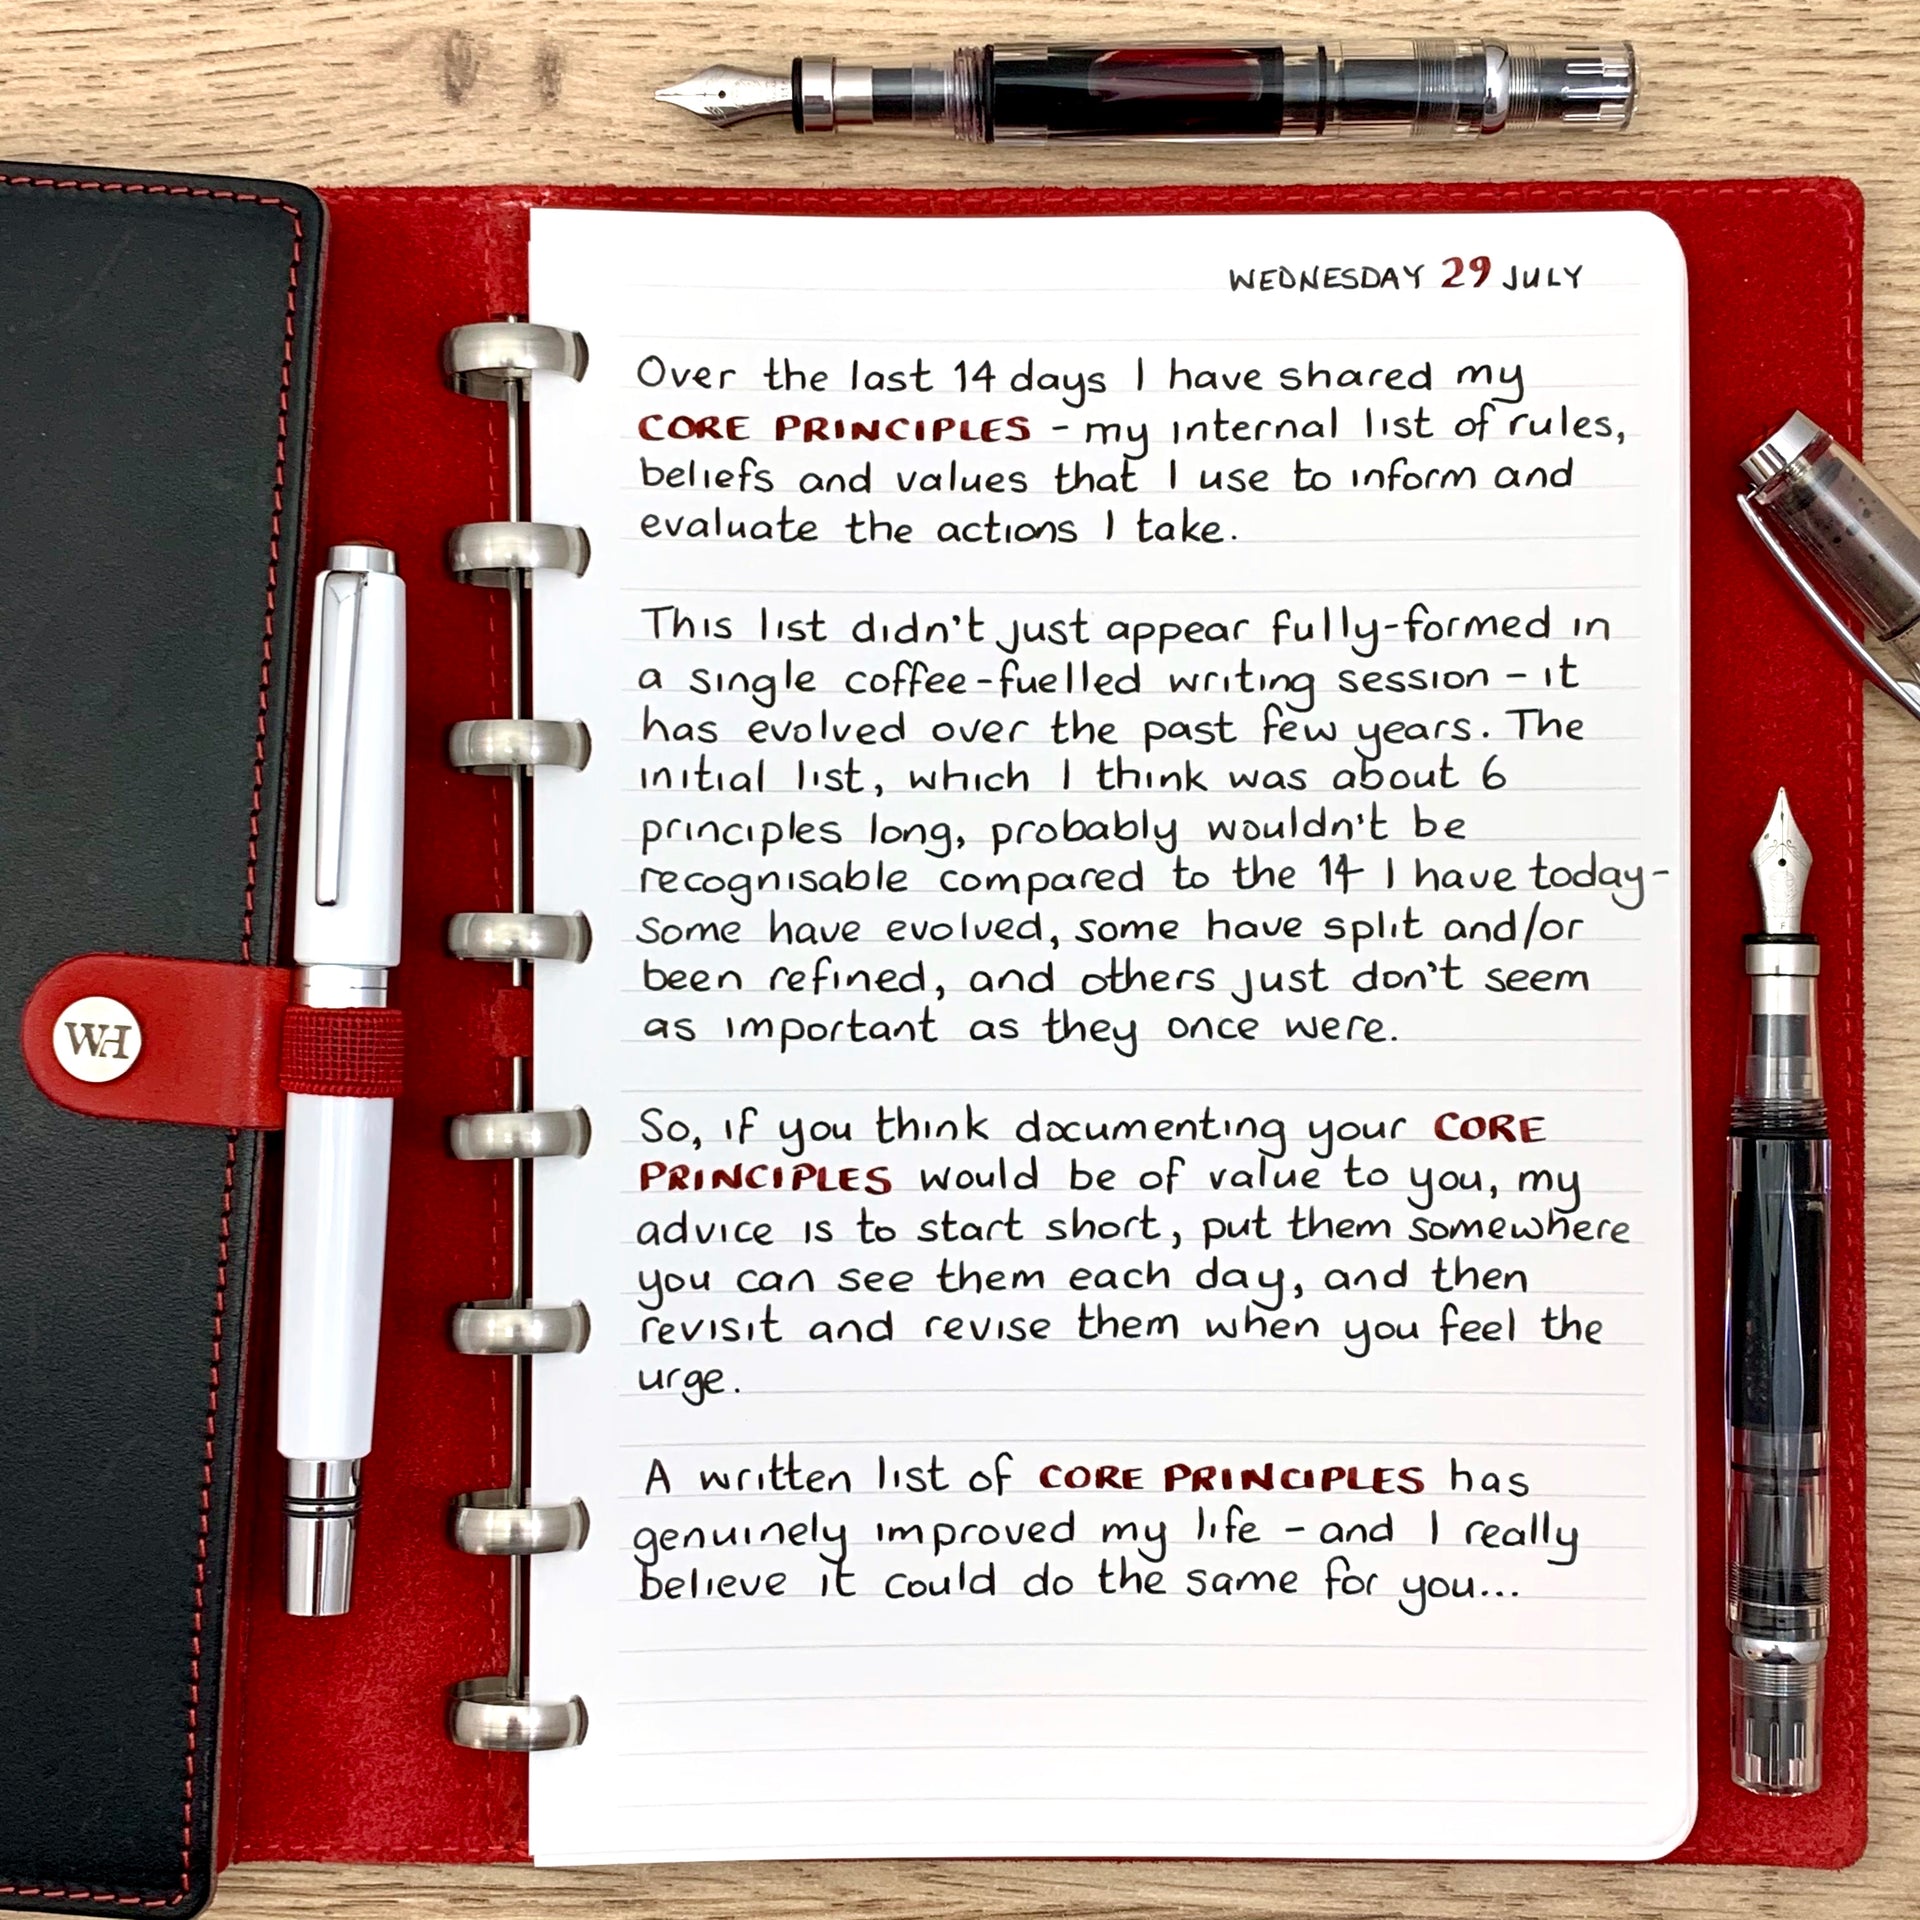 WEDNESDAY 29 JULY
Over the last 14 days I have shared my
CORE PRINCIPLES - my internal list of rules,
beliefs and values that I use to inform and
evaluate the actions I take.
This list didn't just appear fully-formed in
a single coffee-fuelled writing session - it
has evolved over the past few years. The
initial list, which I think was about 6
principles long, probably wouldn't be
recognisable compared to the 14 I have today-
some have evolved, some have split and/or
been refined, and others just don't seem
as important as they once were.
So, if you think documenting your CORE
PRINCIPLES would be of value to you, my
advice is to start short, put them somewhere
you can see them each day, and then
revisit and revise them when you feel the
urge.
A written list of CORE PRINCIPLES has
genuinely improved my life - and I really
believe it could do the same for you...
WH
F